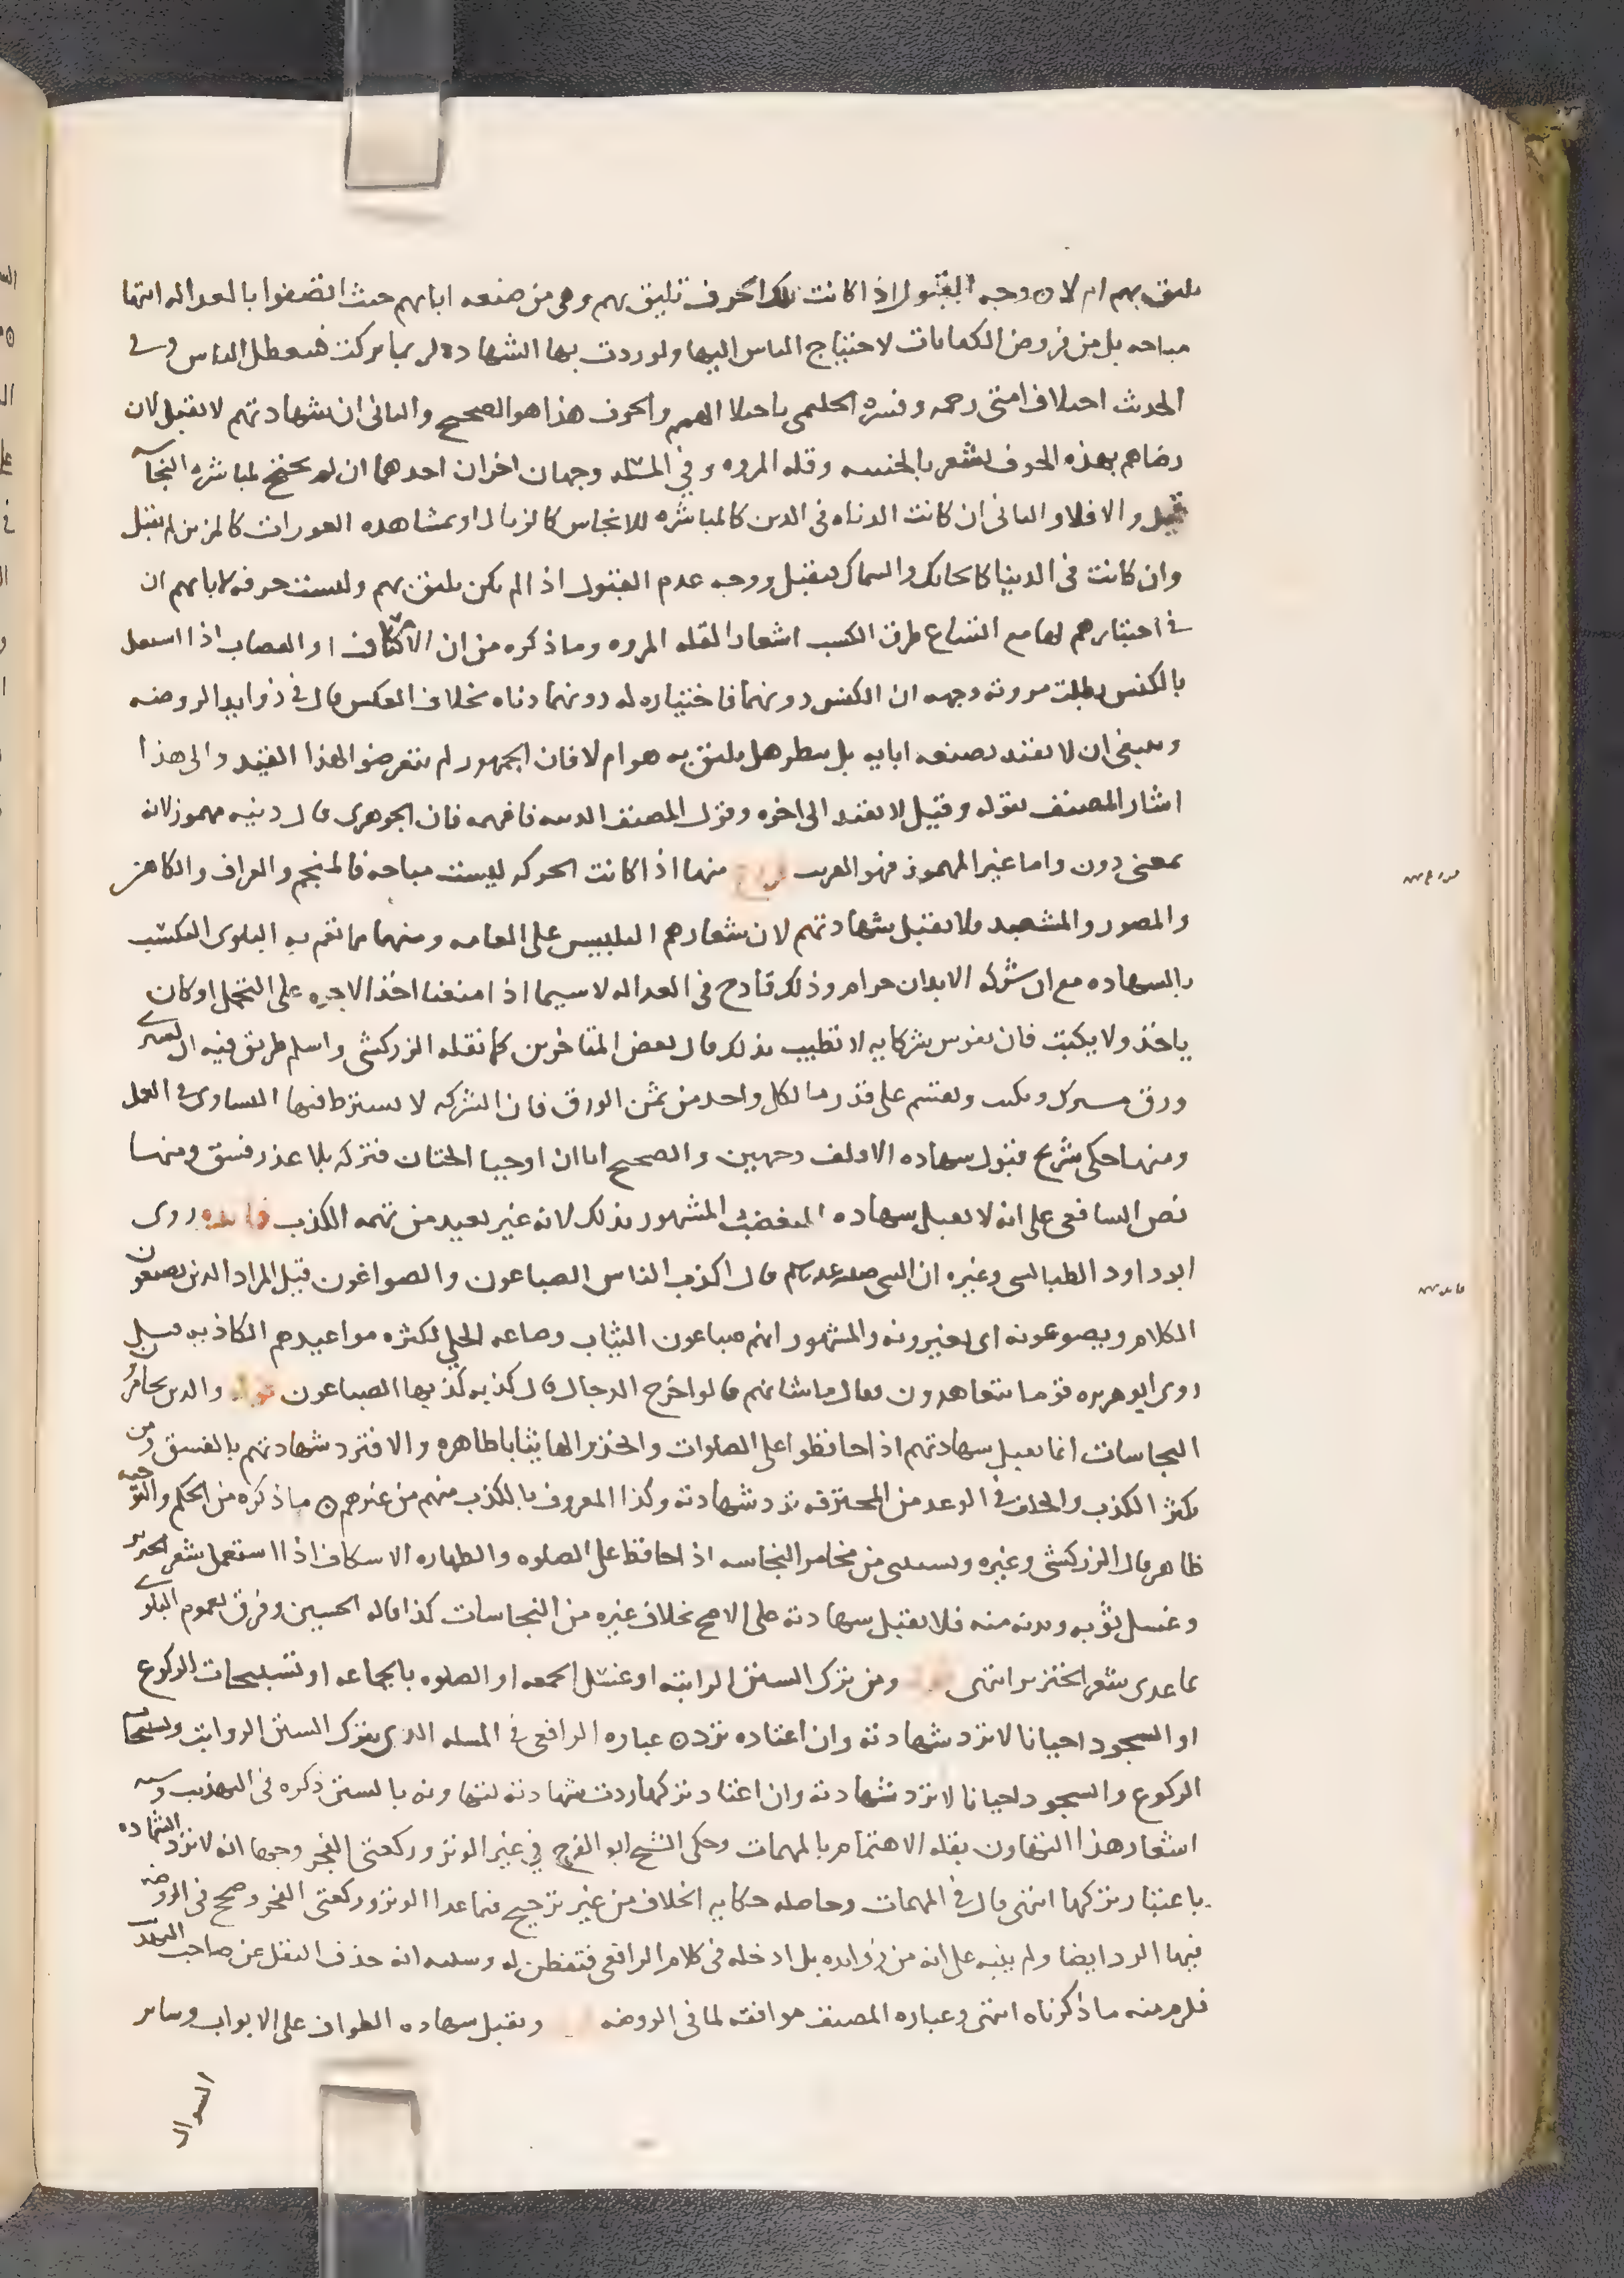 يليق بهم ام لا ٥ وجه القبول اذا كانت تلك الحرف تليق بهم وهي من صنعه ابايهم حيث اتصفوا بالعداله انها
مباحه بل من فروض الكفايات لاحتياج الناس اليها ولو ردت بها الشهاده لربما تركت فتعطل الناس وفي
الحديث اختلاف امتي رحمه وفسره الحليمي باختلاف الهمم والحرف هذا هو الصحيح والثاني ان شهادتهم لا تقبل لان
رضاهم بهذه الحرف يشعر بالخسه وقله المروه وفي المسله وجهان اخران احدهما ان لم يحتج لمباشره النجاسه
قبل والا فلا والثاني ان كانت الدناه في الدين كالمباشره للانجاس كالزبال او بمشاهده العورات كالمزين لم يقبل
وان كانت في الدنيا كالحايك والسماك فيقبل ووجه عدم القبول اذا لم يكن يليق بهم وليست حرفه لابايهم ان
في اختيارهم لها مع اتساع طرق الكسب اشعارا لقله المروه وما ذكره من ان الاسكاف او القصاب اذا اشتغل
بالكنس بطلت مروته وجهه ان الكنس دونهما فاختياره له دونهما دناه بخلاف العكس قال في زوايد الروضه
وينبغي ان لا يقيد بصنعه ابايه بل ينظر هل يليق به هو ام لا فان الجمهور لم يتعرضوا لهذا القيد والى هذا
اشار المصنف بقوله وقيل لا يقيد الى اخره وقول المصنف الدنيه فافهمه فان الجوهري قال دنيه مهموز لانه
بمعنى دون واما غير المهموز فهو القريب فروع منها اذا كانت الحرفه ليست مباحه فالمنجم والعراف والكاهن
والمصور والمشعبذ ولا يقبل شهادتهم لان شعارهم التلبيس على العامه ومنها مما تعم به البلوى التكسب
بالشهاده مع ان شركه الابدان حرام وذلك قادح في العداله لا سيما اذا منعنا اخذ الاجره على التحمل او كان
ياخذ ولا يكتب فان نفوس شركايه لا تطيب بذلك قال بعض المتاخرين كما نقله الزركشي واسلم طريق فيه ان يشتري
ورق مشترك ويكتب ويقتسم على قدر ما لكل واحد من ثمن الورق فان الشركه لا يشترط فيها التساوي في العمل
ومنها حكى شريح قبول شهاده الاقلف وجهين والصحيح انا ان اوجبنا الختان فتركه بلا عذر فسق ومنها
نص الشافعي على انه لا يقبل شهاده المتعصب المشهور بذلك لانه غير بعيد من تهمه الكذب فايده روى
ابو داود الطيالسي وغيره ان النبي صلى الله عليه وسلم قال اكذب الناس الصباغون والصواغون قيل المراد الذين يصبغون
الكلام ويصوغونه اي يغيرونه والمشهور انهم صباغون الثياب وصاغه الحلي لكثره مواعيدهم الكاذبه قيل
روى ابو هريره قوما يتعاهدون فقال ما شانهم قالوا خرج الدجال قال كذبه كذبها الصباغون قوله والذين يخامرون
النجاسات انما يقبل شهادتهم اذا حافظوا على الصلوات واتخذوا لها ثيابا طاهره والا فترد شهادتهم بالفسق ومن
يكثر الكذب والحلف في الوعد من المحترفه ترد شهادته وكذا المعروف بالكذب منهم من غيرهم ٥ ما ذكره من الحكم والتوجيه
ظاهر قال الزركشي وغيره ويستثنى من مخامر النجاسه اذا حافظ على الصلوه والطهاره الاسكاف اذا استعمل شعر الخنزير
وغسل ثوبه وبدنه منه فلا يقبل شهادته على الاصح بخلاف غيره من النجاسات كذا قاله الحسين وفرق بعموم البلوى
بما عدى شعر الخنزير انتهى ومن ترك السنن الراتبه او غسل الجمعه او الصلوه بالجماعه او تسبيحات الركوع
او السجود احيانا لا ترد شهادته وان اعتاده ترد ٥ عباره الرافعي في المسله الذي يترك السنن الرواتب وتسبيحات
الركوع والسجود احيانا لا ترد شهادته وان اعتاد تركها ردت شهادته لتهاونه بالسنن ذكره في التهذيب وسبه
اشعار هذا التهاون بقله الاهتمام بالمهمات وحكى الشيخ ابو الفرج في غير الوتر وركعتي الفجر وجها انه لا ترد الشهاده
باعتياد تركها انتهى قال في المهمات وحاصله حكايه الخلاف من غير ترجيح فيما عدا الوتر وركعتي الفجر وصحح في الروضه
فيها الرد ايضا ولم ينبه على انه من زوايده بل ادخله في كلام الرافعي فتفطن له وسببه انه حذف النقل عن صاحب التهذيب
فلزم منه ما ذكرناه انتهى وعباره المصنف موافقه لما في الروضه ويقبل شهاده الطواف على الابواب وساير
السوال
فروع
فايده